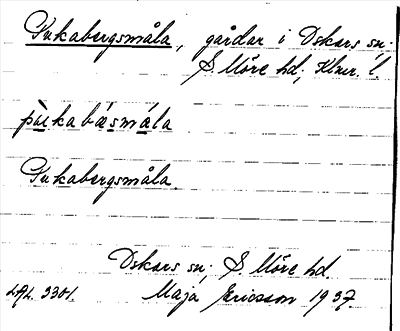 Pukabergsmåla, gårdar i Oskars sn;
S. Möre hd; Klmr. l.
pùkabæ̀smá̊la
Pukabergsmåla.
Oskars sn; S. Möre hd.
Maja Ericsson 1937.